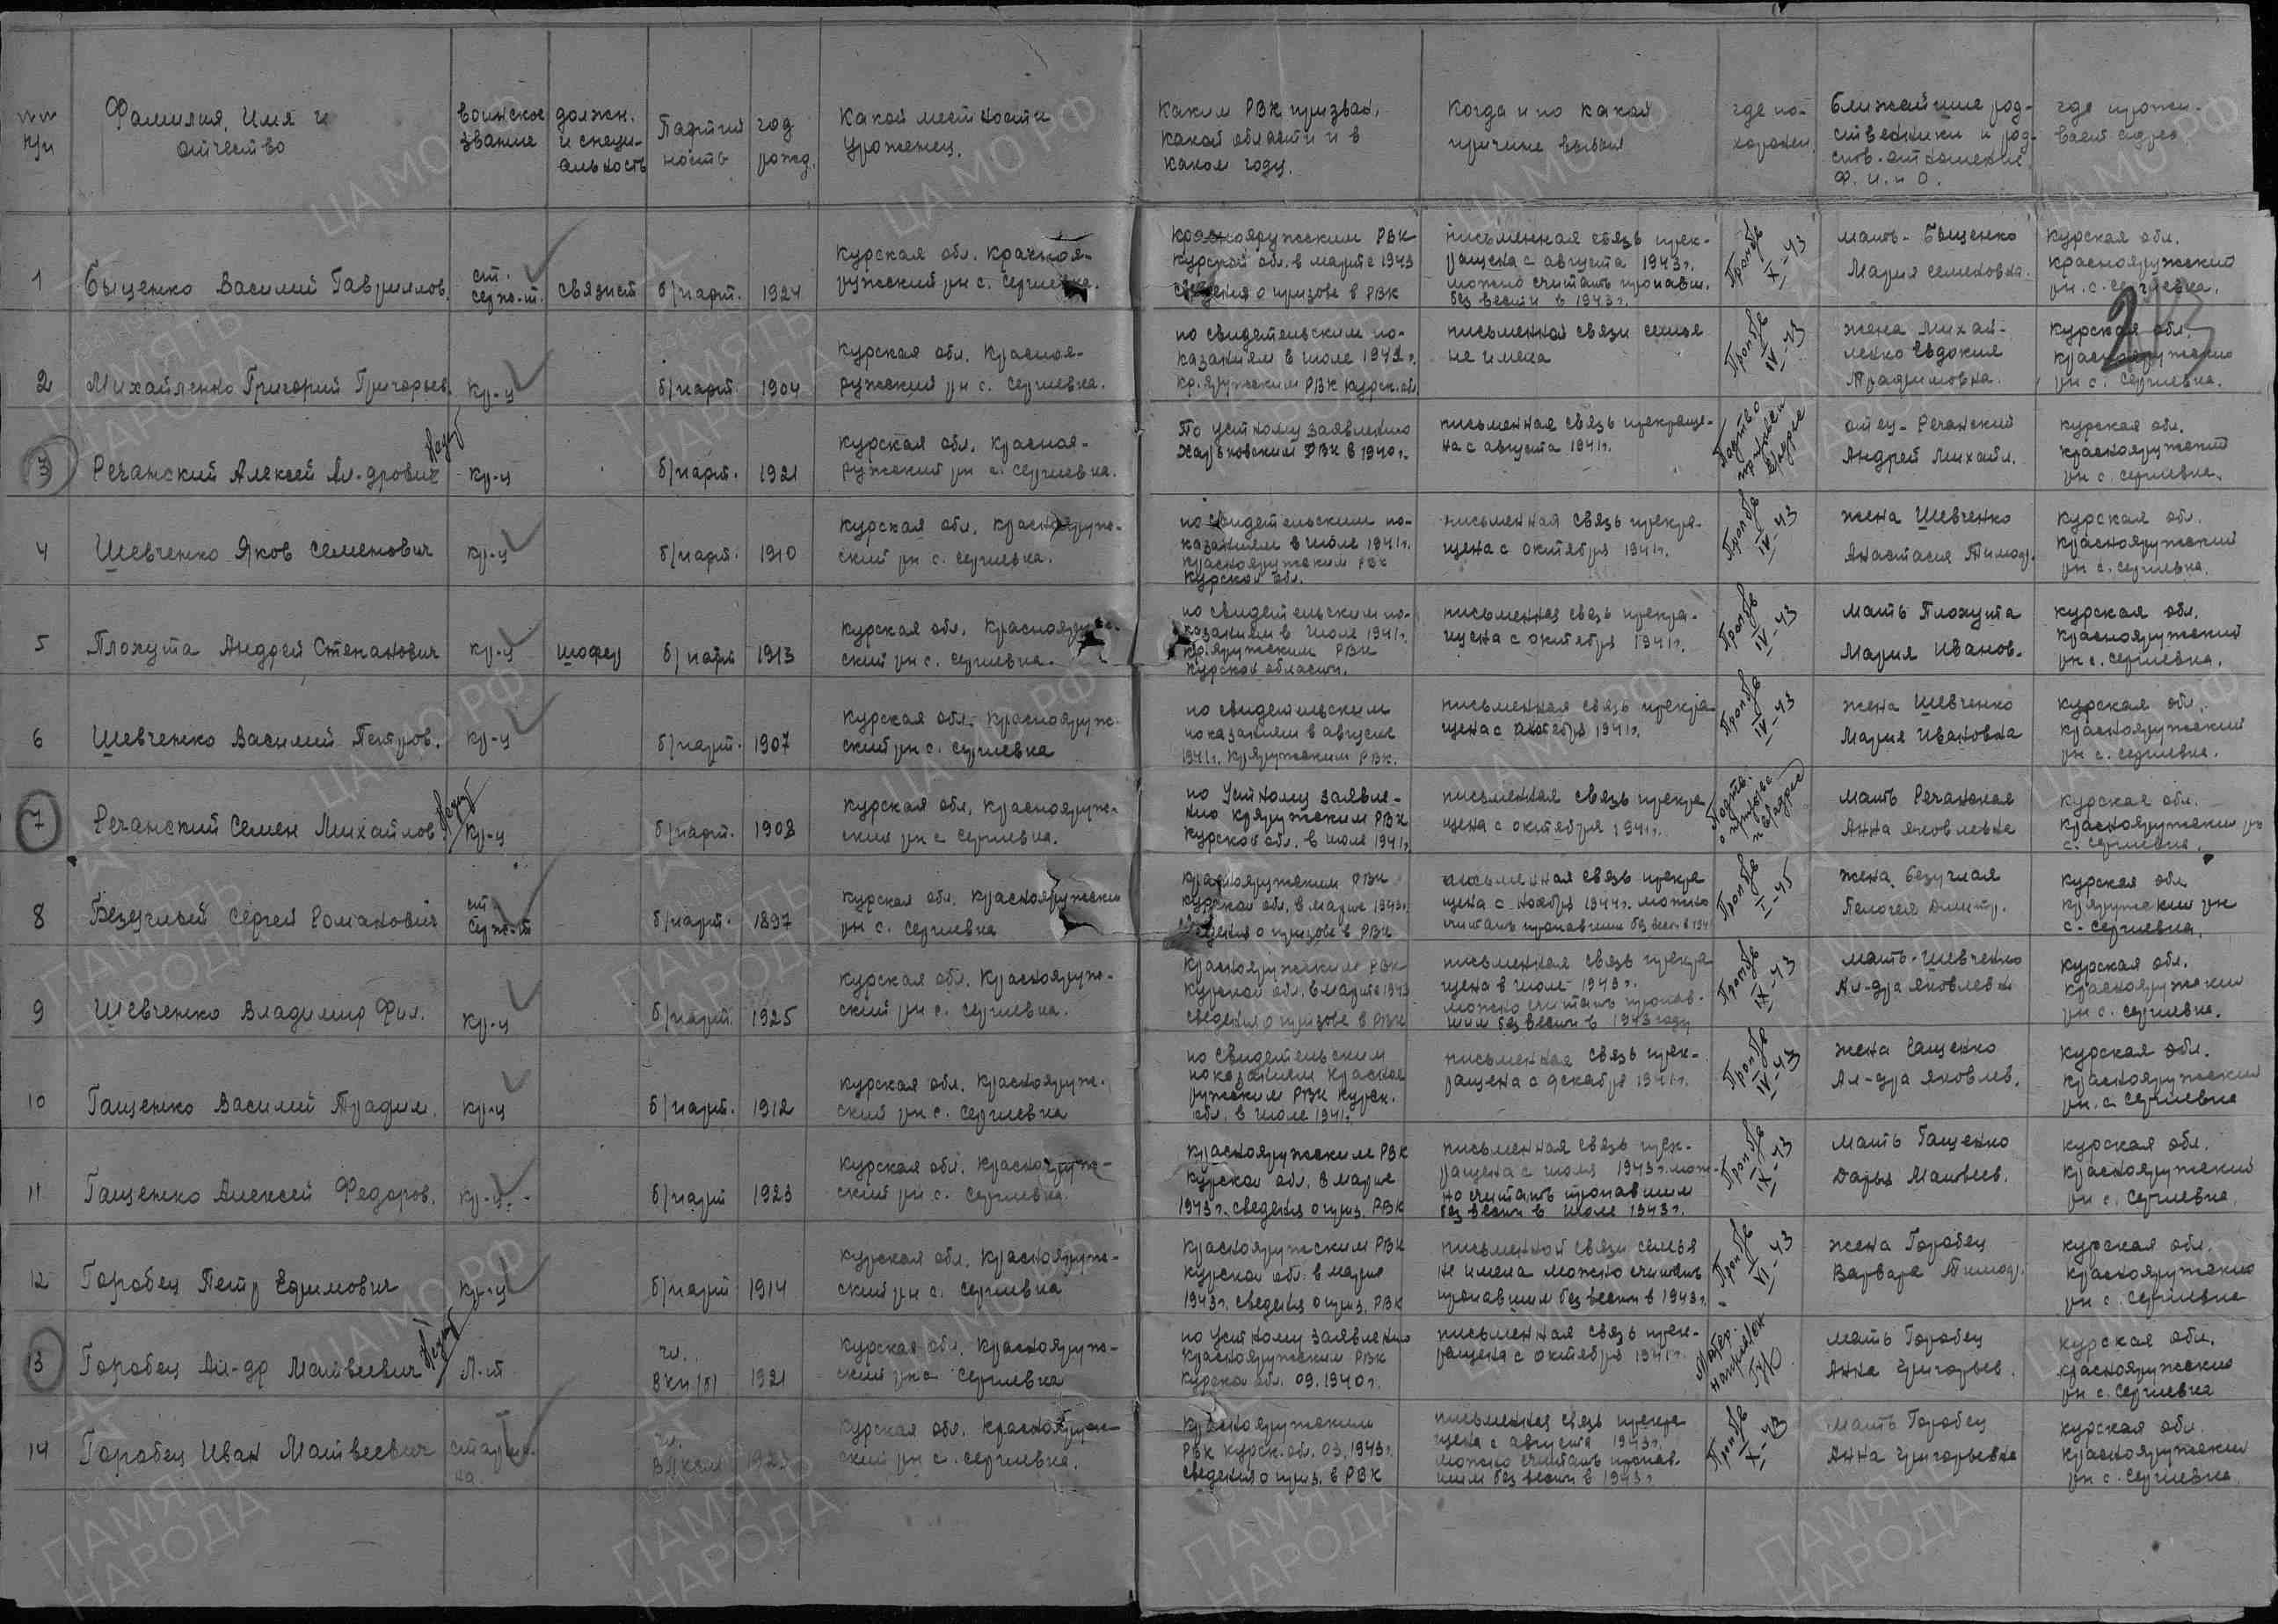 №№ п/п
Фамилия, Имя и отчество
воинское звание
должн. и специальность
Партийность
год рожд.
Какой местности уроженец.
Каким РВК призван, какой области и в каком году.
Когда и по какой причине выбыл
где похоронен.
Ближайшие родственники и родств. отношение. Ф. И. и О.
где проживает адрес
213
1 Быценко Василий Гаврилов. ст. серж-т. связист б/парт. 1924
Курская обл. Краснояружский р-н с. Сергиевка.
Краснояружским РВК Курской обл. в марте 1943 сведения о призове в РВК
письменная связь прекращена с августа 1943 г. можно считать пропавш. без вести в 1943 г.
Проп б/в X-43
мать - Быценко Мария Семеновна.
Курская обл. Краснояружский р-н. с. Сергиевка.
2 Михайленко Григорий Григорьев. кр-ц б/парт. 1904
Курская обл. Краснояружский р-н с. Сергиевка.
по свидетельским показаниям в июле 1941 г. Кр. яружским РВК Курск. обл.
письменной связи семья не имела
Проп б/в IV-43
жена Михайленко Евдокия Трафимовна.
Курская обл. Краснояружско р-н с. Сергиевка.
3 Речанский Алексей Ал-дрович кр-ц б/парт. 1921
Курская обл. Краснояружский р-н с. Сергиевка.
По устному заявлению Харьковским РВК в 1940 г.
письменная связь прекращена с августа 1941 г.
отец - Речанский Андрей Михайл.
Курская обл. Краснояружский р-н с. Сергиевка.
4 Шевченко Яков Семенович кр-ц б/парт. 1910
Курская обл. Краснояружский р-н с. Сергиевка.
по свидетельским показаниям в июле 1941 г. Краснояружским РВК Курской обл.
письменная связь прекращена с октября 1941 г.
Проп б/в IV-43
жена Шевченко Анастасия Тимоф.
Курская обл. Краснояружский р-н с. Сергиевка.
5 Плохута Андрей Степанович кр-ц шофер б/парт 1913
Курская обл. Краснояружский р-н с. Сергиевка.
по свидетельским показаниям в июле 1941 г. Кр. яружским РВК Курской области.
письменная связь прекращена с октября 1941 г.
Проп б/в IV-43
Мать Плохута Мария Иванов.
Курская обл. Краснояружский р-н с. Сергиевка.
6 Шевченко Василий Петров. кр-ц б/парт. 1907
Курская обл. Краснояружский р-н с. Сергиевка
по свидетельским показаниям в августе 1941 г. Кр.яружским РВК.
письменная связь прекращена с октября 1941 г.
Проп б/в IV-43
жена Шевченко Мария Ивановна
Курская обл. Краснояружский р-н с. Сергиевка.
7 Речанский Семен Михайлов. кр-ц б/парт. 1908
Курская обл. Краснояружский р-н с Сергиевка.
по устному заявлению Кр.яружским РВК Курской обл. в июле 1941 г.
письменная связь прекращена с октября 1941 г.
Мать Речанская Анна Яковлевна
Курская обл. Краснояружский р-н с. Сергиевка.
8 Безуглый Сергей Романович ст. серж-т б/парт. 1897
Курская обл. Краснояружский р-н с. Сергиевка
Краснояружским РВК Курской обл. в марте 1943 г. сведения о призове в РВК
письменная связь прекращена с ноября 1944 г. можно считать пропавшим без вест. в 194
Проп б/в I-45
жена Безуглая Пелогея Дмитр.
Курская обл Кр.яружский р-н с. Сергиевка.
9 Шевченко Владимир Фил. кр-ц б/парт. 1925
Курская обл. Краснояружский р-н с. Сергиевка.
Краснояружским РВК Курской обл. в марте 1943 сведения о призове в РВК
письменная связь прекращена в июле 1943 г. можно считать пропавшим без вести в 1943 году
Проп б/в IX-43
Мать - Шевченко Ал-дра Яковлевн
Курская обл. Краснояружский р-н с. Сергиевка.
10 Гащенко Василий Трафим. кр-ц б/парт. 1912
Курская обл. Краснояружский р-н с. Сергиевка
по свидетельским показаниям Краснояружским РВК Курск. обл. в июле 1941 г.
письменная связь прекращена с декабря 1941 г.
Проп б/в IV-43
жена Гащенко Ал-дра Яковлев.
Курская обл. Краснояружский р-н. с Сергиевка
11 Гащенко Алексей Федоров. кр-ц. б/парт 1923
Курская обл. Краснояружский р-н с. Сергиевка.
Краснояружским РВК Курской обл. в марте 1943 г. сведения о приз. РВК
письменная связь прекращена с июля 1943 г. можно считать пропавшим без вести в июле 1943 г.
Проп б/в IX-43
Мать Гащенко Дарья Матвеев.
Курская обл. Краснояружский р-н с. Сергиевка.
12 Горобец Петр Ефимович кр-ц б/парт 1914
Курская обл. Краснояружский р-н с. Сергиевка
Краснояружским РВК Курской обл. в марте 1943 г. сведения о приз. РВК
письменной связи семья не имела можно считать пропавшим без вести в 1943 г.
Проп б/в VI-43
жена Горобец Варвара Тимоф.
Курская обл. Краснояружско р-н с. Сергиевка
13 Горобец Ал-др Матвеевич Л-т чл. ВКП(б) 1921
Курская обл. Краснояружский р-н с Сергиевка
по устному заявлению Краснояружским РВК Курской обл. 09.1940 г.
письменная связь прекращена с октября 1941 г.
Матер. направлен ГУК
мать Горобец Анна Григорьев.
Курская обл. Краснояружско р-н с. Сергиевка
14 Горобец Иван Матвеевич старшина чл. ВЛКСМ 1923
Курская обл. Краснояружский р-н с. Сергиевка.
Краснояружским РВК Курск. обл. 03.1943 г. сведения о приз. в РВК
письменная связь прекращена с августа 1943 г. можно считать пропавшим без вести в 1943 г
Проп б/в X-43
мать Горобец Анна Григорьевна
Курская обл. Краснояружский р-н с. Сергиевка.
ПАМЯТЬ НАРОДА
ЦА МО РФ